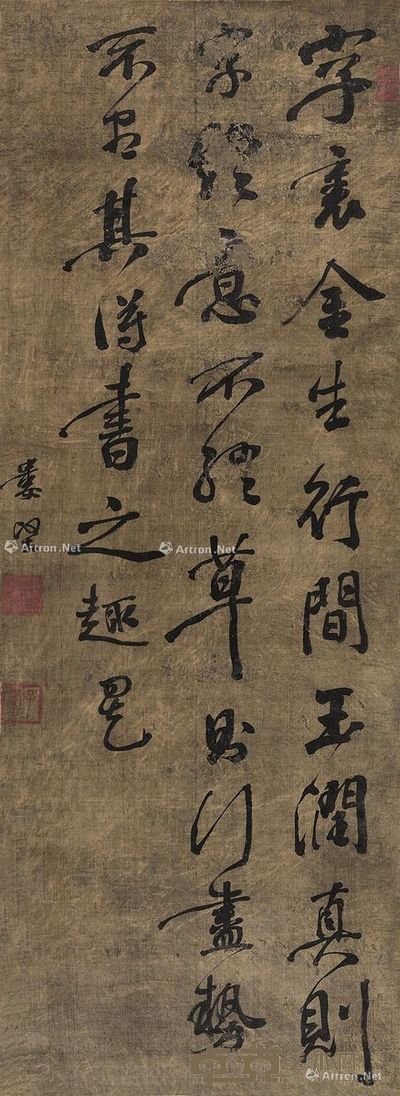 字裏金生行間玉潤真則
字終意不終草則行盡勢
不盡其得書之趣
婁堅
Artron.Net
Artron.Net
Artron.Net